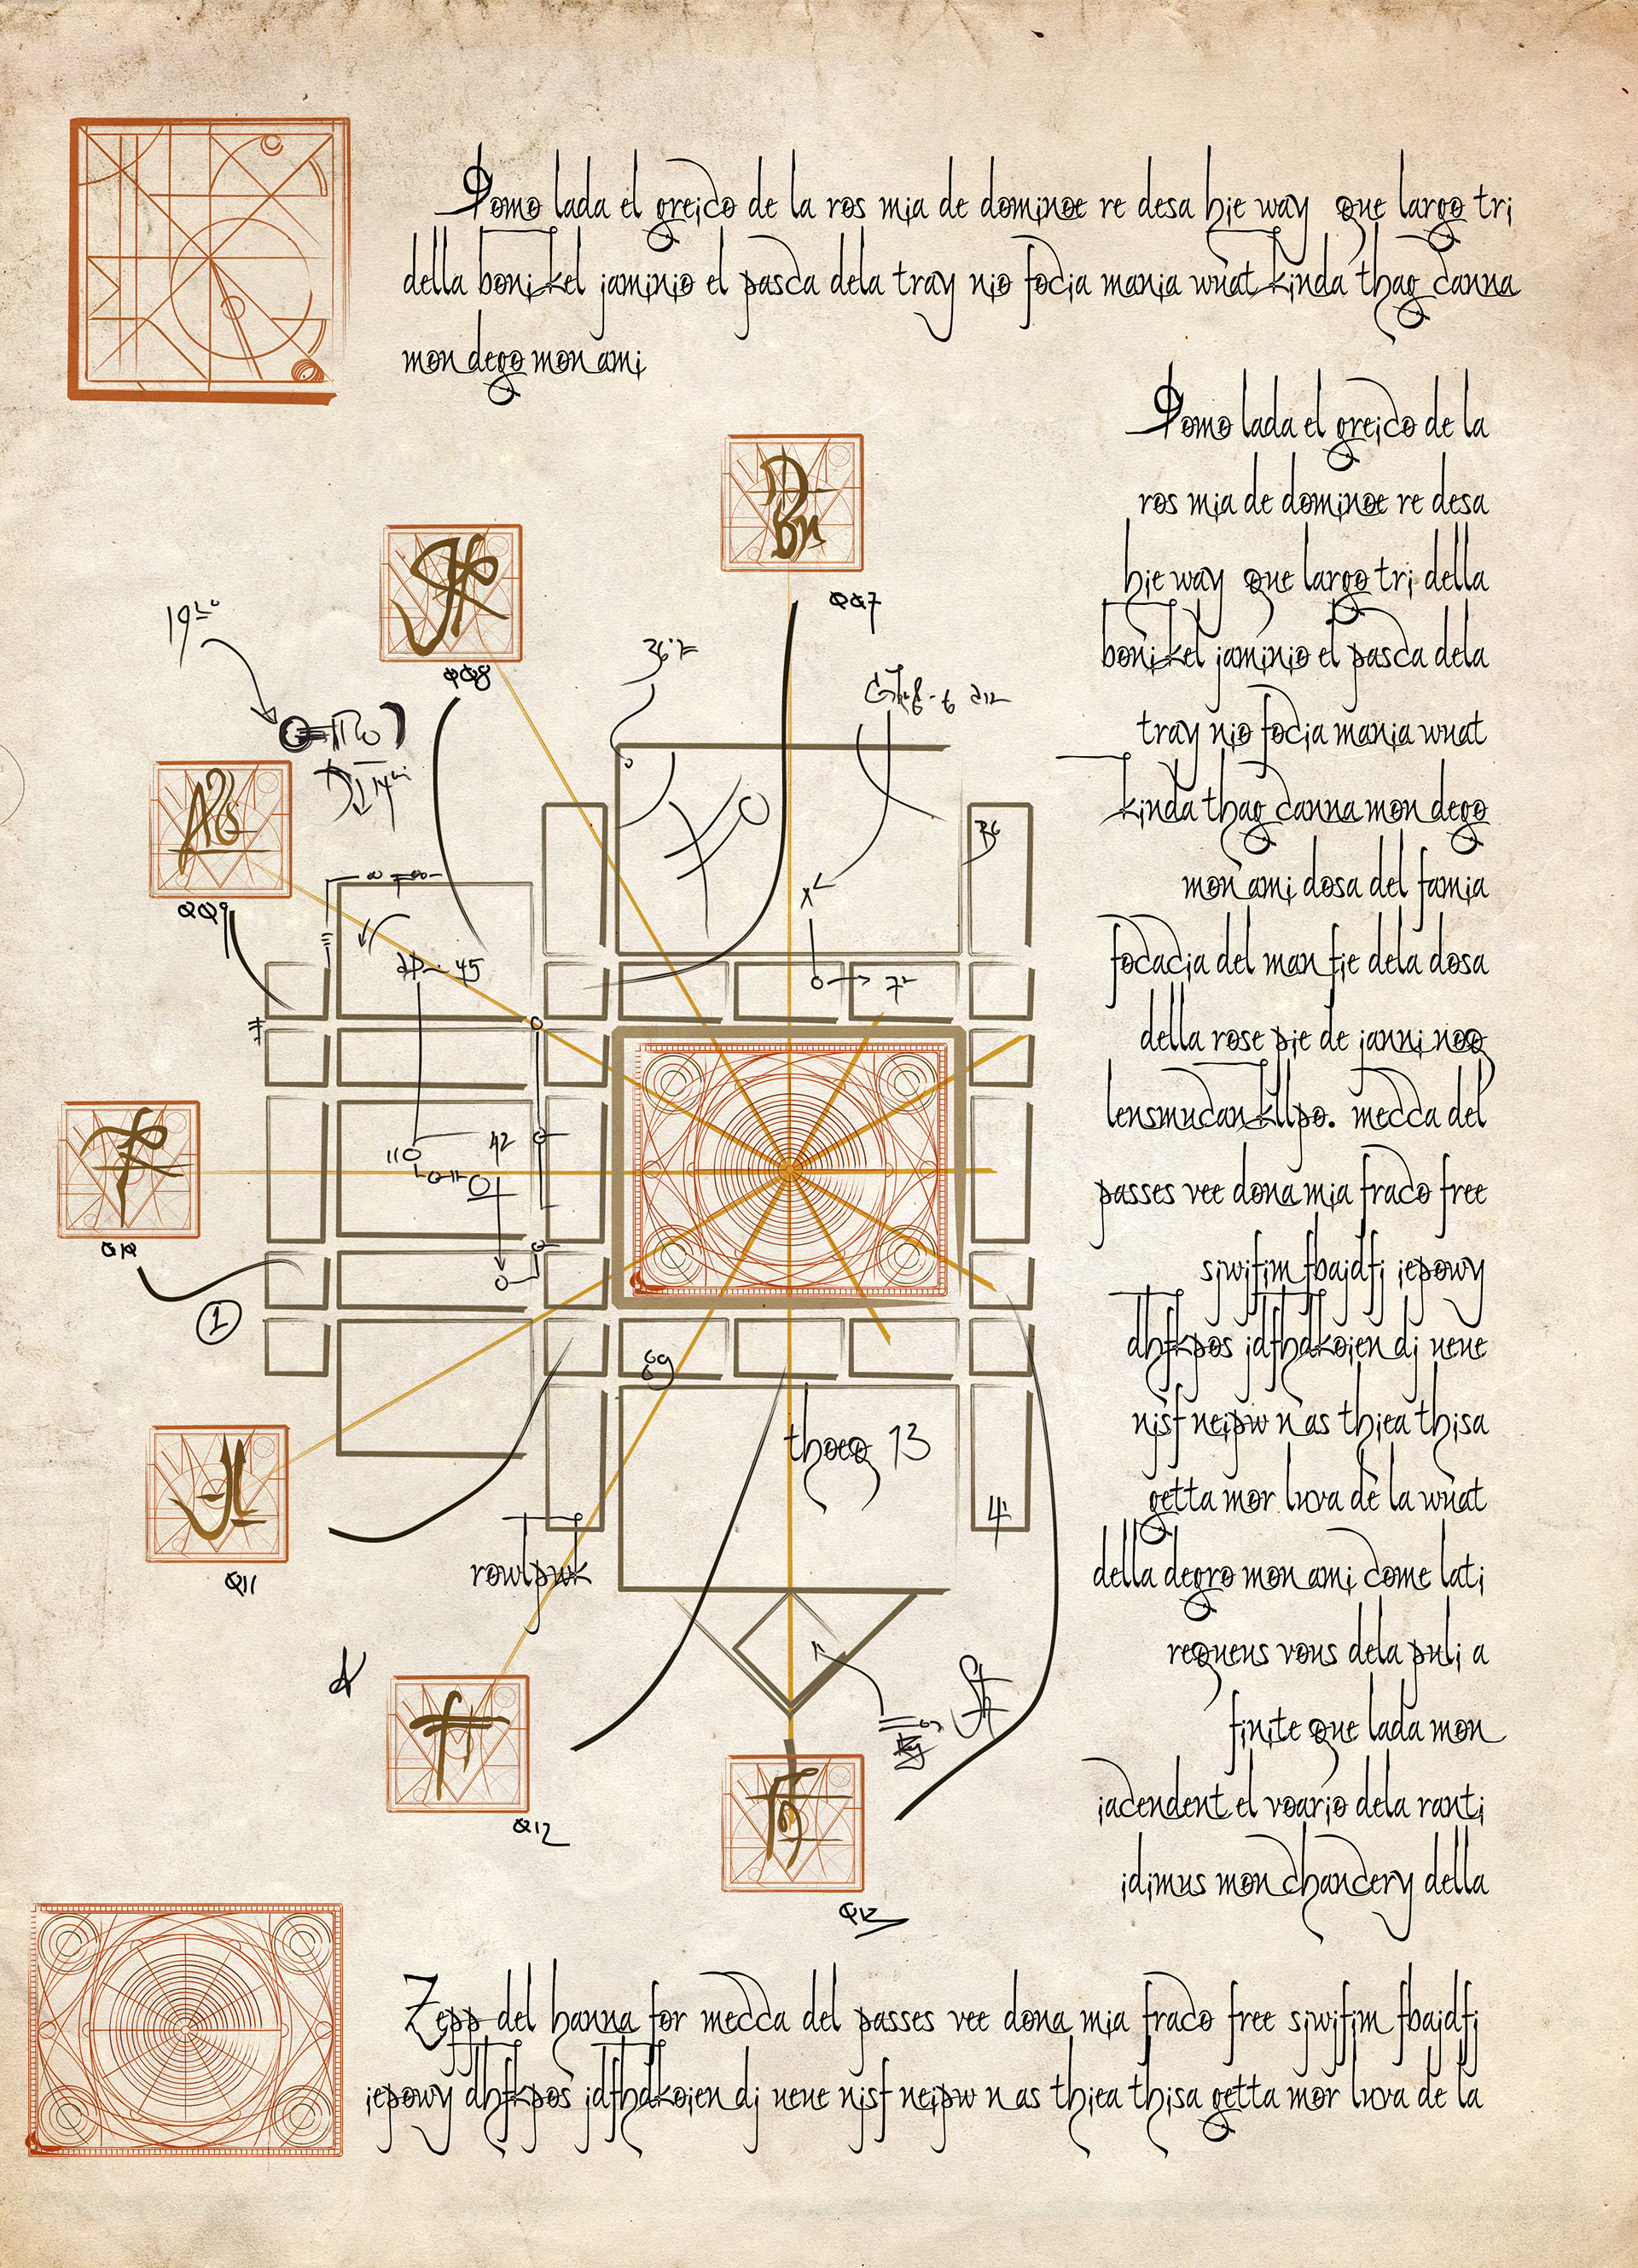 Domo lada el greico de la ros mia de dominoe re desa hie way que largo tri
della boni kel jaminio el pasca dela tray nio focia mania wuat kinda thag canna
mon dego mon ami
Domo lada el greico de la
ros mia de dominoe re desa
hie way que largo tri della
boni kel jaminio el pasca dela
tray nio focia mania wuat
kinda thag canna mon dego
mon ami dosa del famia
focacia del man fie dela dosa
della rose pie de janni noo
lensmucan kllpo. mecca del
passes vee dona mia fraco free
sjwifim fbajdfj iepowy
dhfkpos jdfhdkojen dj nene
njsf neipw n as thiea thisa
getta mor luva de la wuat
della degro mon ami come lati
requens vous dela puli a
finite que lada mon
jacendent el voario dela ranti
idimus mon chancery della
QQ7
QQ8
QQ9
Q10
Q11
Q12
36
42
45
110
72
1
69
thoeq 13
rowlpwk
Zepp del hanna for mecca del passes vee dona mia fraco free sjwifim fbajdfj
iepowy dhfkpos jdfhdkojen dj nene njsf neipw n as thiea thisa getta mor luva de la